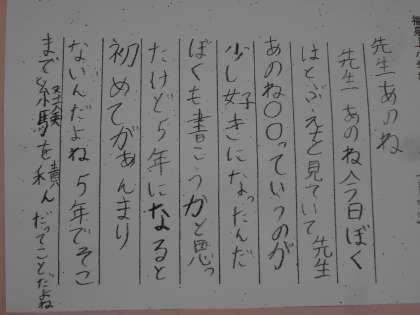 先生あのね
先生あのね今日ぼく
はとぶえを見ていて先生
あのね○○っていうのが
少し好きになったんだ
ぼくも書こうかと思っ
たけど5年になると
初めてがあんまり
ないんだよね5年でそこ
まで経験を積んだってことだよね